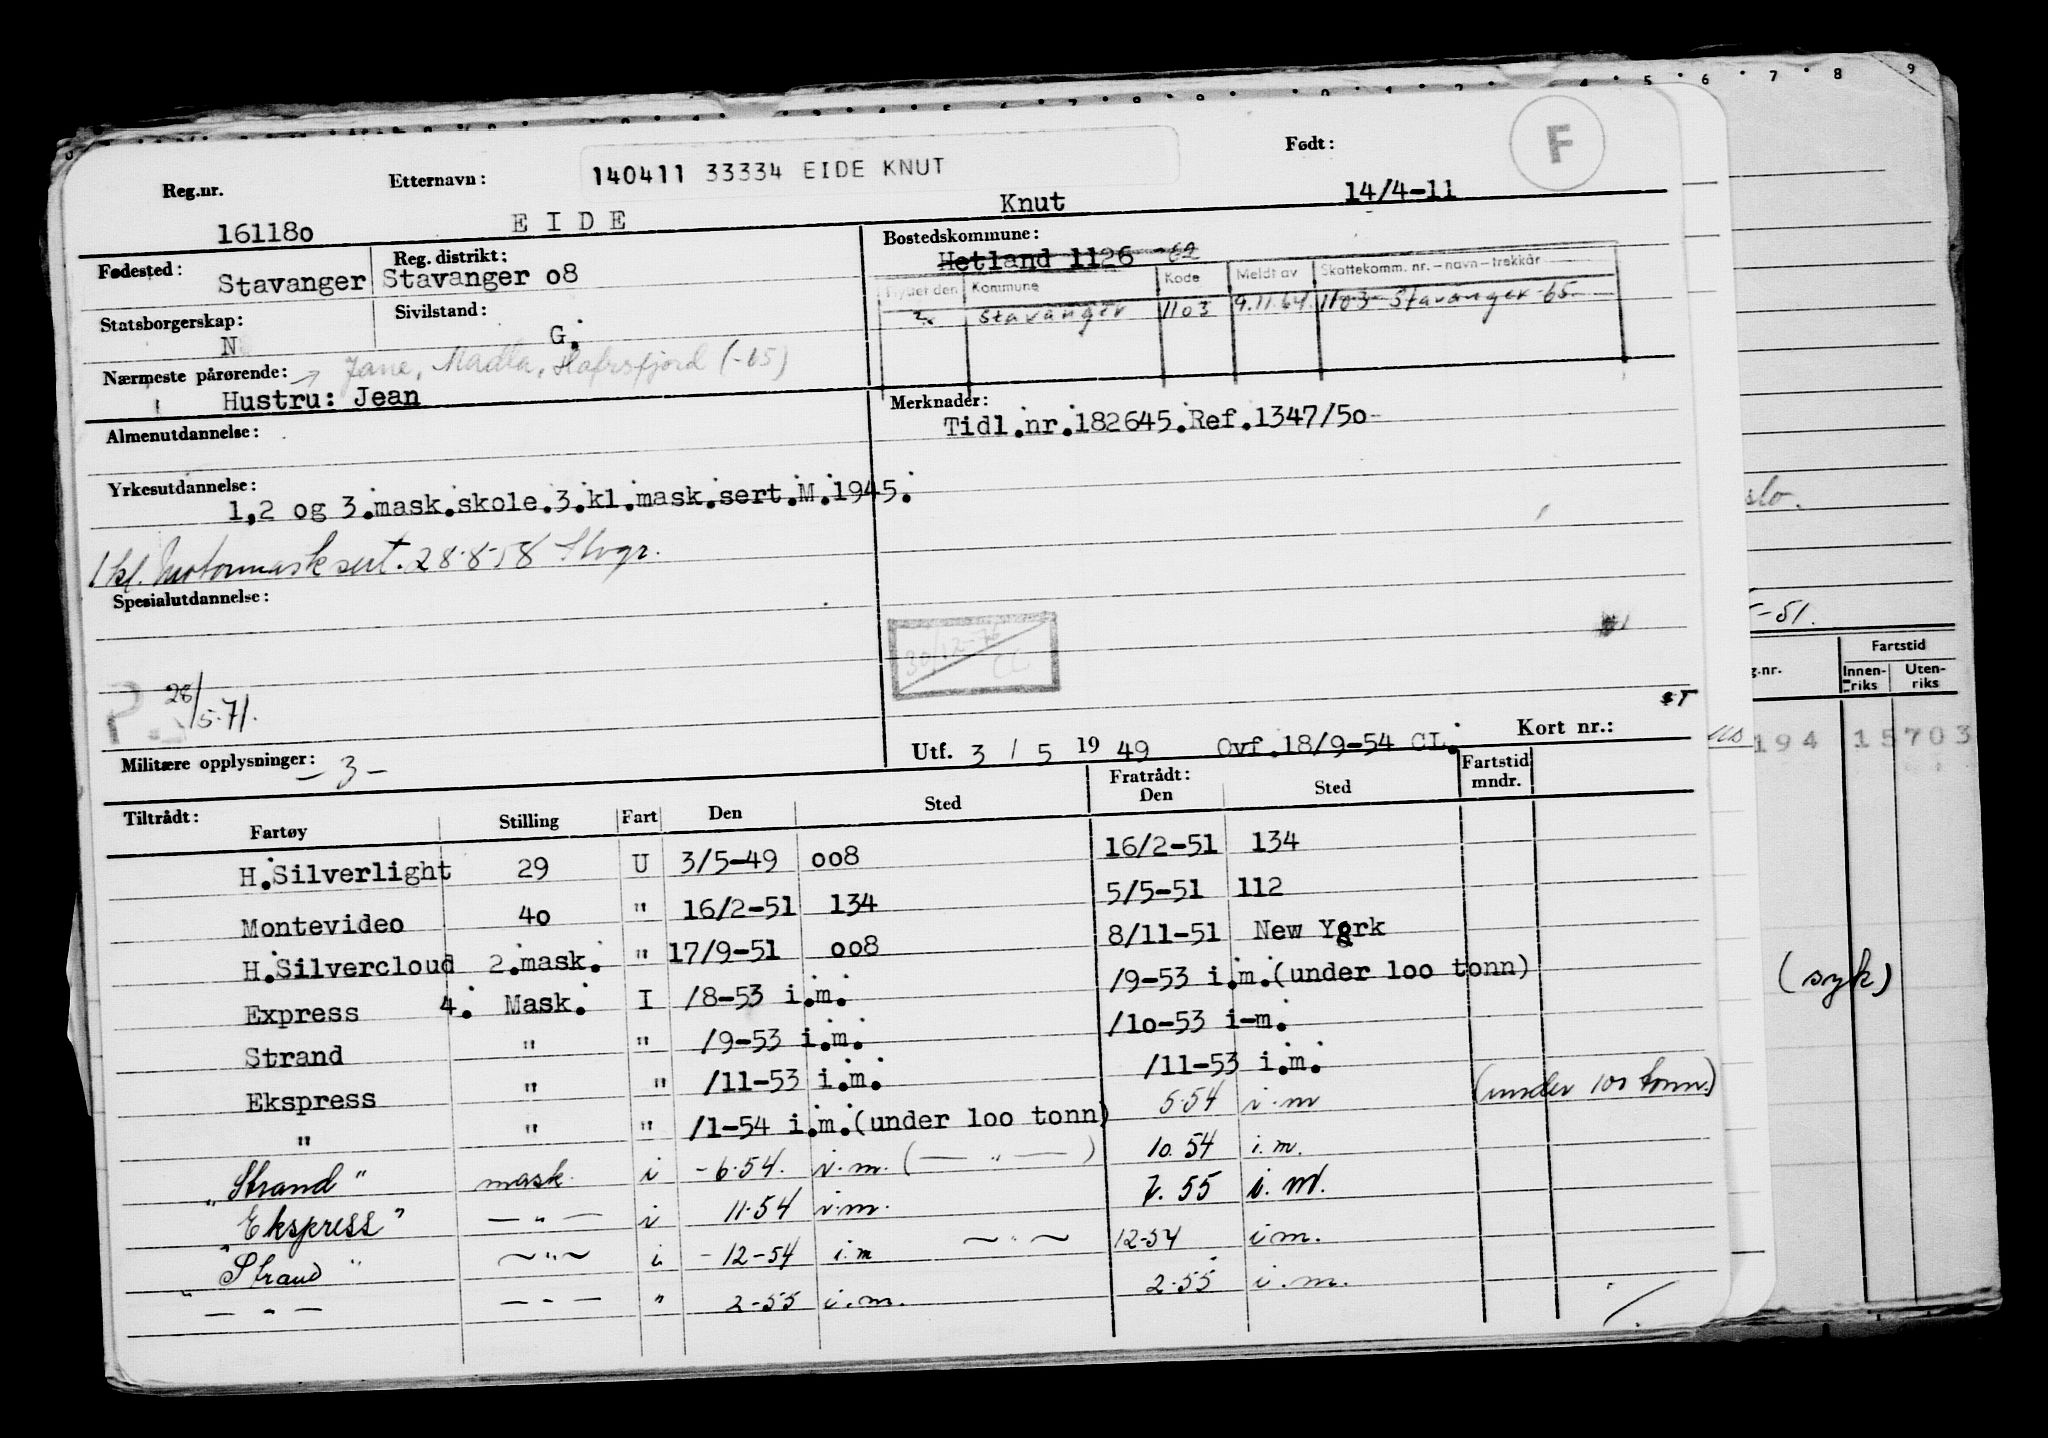 140411 33334 EIDE KNUT
F
Reg.nr. Etternavn: Født:
161180 EIDE Knut 14/4-11
Fødested: Stavanger
Reg. distrikt: Stavanger o8
Bostedskommune: Hetland 1126 -62
Flyttet den Kommune Kode Meldt av Skattekomm. nr. – navn – trekkår
Stavanger 1103 9.11.64 1103 - Stavanger -65
Statsborgerskap: N
Sivilstand: G.
Nærmeste pårørende: → Jane, Madla, Hafrsfjord (-65)
Hustru: Jean
Merknader:
Tidl.nr.182645.Ref.1347/5o
Almenutdannelse:
Yrkesutdannelse:
1,2 og 3.mask.skole.3.kl.mask.sert.M.1945.
1 kl. motormask sert. 28-8-58 Stvgr.
Spesialutdannelse:
30/12-76
CC
P.
28/5.71.
ST
Militære opplysninger: – 3 –
Utf. 3 / 5 19 49 Ovf.18/9-54 CL. Kort nr.:
Tiltrådt: Fartøy Stilling Fart Den Sted Fratrådt: Den Sted Fartstid mndr.
H.Silverlight 29 U 3/5-49 oo8 16/2-51 134
Montevideo 4o " 16/2-51 134 5/5-51 112
H.Silvercloud 2.mask. " 17/9-51 oo8 8/11-51 New York
Express 4. Mask. I /8-53 i.m. /9-53 i.m.(under loo tonn)
Strand " " /9-53 i.m. /1o-53 i-m.
Ekspress " " /11-53 i.m. /11-53 i.m.
" " " /1-54 i.m.(under loo tonn) 5-54 i.m (under 100 tonn.)
"Strand" mask. i -6-54. i.m. (— " —) 10.54 i.m.
"Ekspress" — " — i 11-54 i.m. 7.55 i.m.
"Strand" ~ " ~ i - 12-54 i.m ~ " ~ 12-54 i.m.
— " — — " — " 2-55 i.m. 2-55 i.m.
5 6 7 8 9
slo.
-51.
Fartstid
g.nr. Innen-riks Uten-riks
194 15703
(syk)